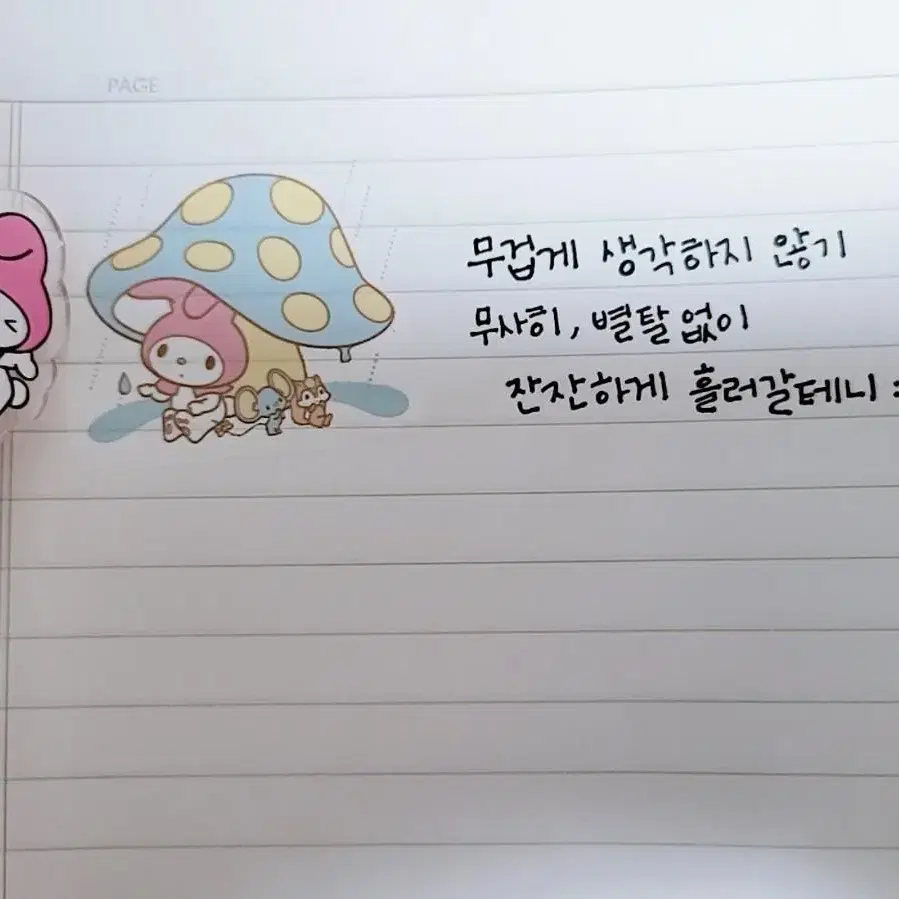 PAGE
무겁게 생각하지 않기
무사히, 별탈 없이
잔잔하게 흘러갈테니 :